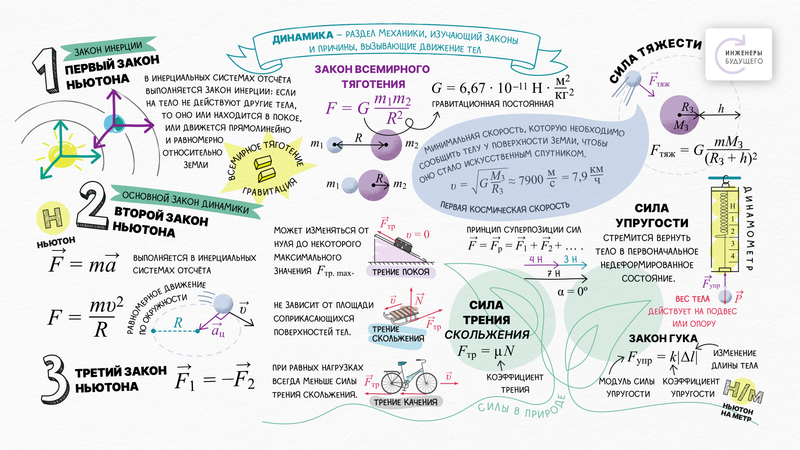 ДИНАМИКА – РАЗДЕЛ МЕХАНИКИ, ИЗУЧАЮЩИЙ ЗАКОНЫ
И ПРИЧИНЫ, ВЫЗЫВАЮЩИЕ ДВИЖЕНИЕ ТЕЛ
ИНЖЕНЕРЫ
БУДУЩЕГО
1
ЗАКОН ИНЕРЦИИ
ПЕРВЫЙ ЗАКОН
НЬЮТОНА
В ИНЕРЦИАЛЬНЫХ СИСТЕМАХ ОТСЧЁТА
ВЫПОЛНЯЕТСЯ ЗАКОН ИНЕРЦИИ: ЕСЛИ
НА ТЕЛО НЕ ДЕЙСТВУЮТ ДРУГИЕ ТЕЛА,
ТО ОНО ИЛИ НАХОДИТСЯ В ПОКОЕ,
ИЛИ ДВИЖЕТСЯ ПРЯМОЛИНЕЙНО
И РАВНОМЕРНО
ОТНОСИТЕЛЬНО
ЗЕМЛИ
ВСЕМИРНОЕ ТЯГОТЕНИЕ
ГРАВИТАЦИЯ
ЗАКОН ВСЕМИРНОГО
ТЯГОТЕНИЯ
F = G m₁m₂/R²
G = 6,67 · 10⁻¹¹ Н · м²/кг²
ГРАВИТАЦИОННАЯ ПОСТОЯННАЯ
m₁ R m₂
m₁ R m₂
МИНИМАЛЬНАЯ СКОРОСТЬ, КОТОРУЮ НЕОБХОДИМО
СООБЩИТЬ ТЕЛУ У ПОВЕРХНОСТИ ЗЕМЛИ, ЧТОБЫ
ОНО СТАЛО ИСКУССТВЕННЫМ СПУТНИКОМ.
υ = √(G M₃/R₃) ≈ 7900 м/с = 7,9 км/ч
ПЕРВАЯ КОСМИЧЕСКАЯ СКОРОСТЬ
СИЛА ТЯЖЕСТИ
F⃗тяж
R₃ h
M₃
Fтяж = G mM₃/(R₃ + h)²
2
ОСНОВНОЙ ЗАКОН ДИНАМИКИ
ВТОРОЙ ЗАКОН
НЬЮТОНА
Н
НЬЮТОН
F⃗ = ma⃗
ВЫПОЛНЯЕТСЯ В ИНЕРЦИАЛЬНЫХ
СИСТЕМАХ ОТСЧЁТА
F = mυ²/R
РАВНОМЕРНОЕ ДВИЖЕНИЕ
ПО ОКРУЖНОСТИ
R a⃗ц υ⃗
3
ТРЕТИЙ ЗАКОН
НЬЮТОНА
F⃗₁ = –F⃗₂
МОЖЕТ ИЗМЕНЯТЬСЯ ОТ
НУЛЯ ДО НЕКОТОРОГО
МАКСИМАЛЬНОГО
ЗНАЧЕНИЯ Fтр. max.
F⃗тр υ = 0
ТРЕНИЕ ПОКОЯ
НЕ ЗАВИСИТ ОТ ПЛОЩАДИ
СОПРИКАСАЮЩИХСЯ
ПОВЕРХНОСТЕЙ ТЕЛ.
υ⃗ N⃗
F⃗тр
ТРЕНИЕ
СКОЛЬЖЕНИЯ
ПРИ РАВНЫХ НАГРУЗКАХ
ВСЕГДА МЕНЬШЕ СИЛЫ
ТРЕНИЯ СКОЛЬЖЕНИЯ.
F⃗тр υ⃗
ТРЕНИЕ КАЧЕНИЯ
ПРИНЦИП СУПЕРПОЗИЦИИ СИЛ
F⃗ = F⃗р = F⃗₁ + F⃗₂ + … .
4 Н 3 Н
7 Н
α = 0º
СИЛА
ТРЕНИЯ
СКОЛЬЖЕНИЯ
Fтр = μN
КОЭФФИЦИЕНТ
ТРЕНИЯ
СИЛЫ В ПРИРОДЕ
СИЛА
УПРУГОСТИ
СТРЕМИТСЯ ВЕРНУТЬ
ТЕЛО В ПЕРВОНАЧАЛЬНОЕ
НЕДЕФОРМИРОВАННОЕ
СОСТОЯНИЕ.
Н
1
2
3
4
ДИНАМОМЕТР
F⃗упр
P⃗
ВЕС ТЕЛА
ДЕЙСТВУЕТ НА ПОДВЕС
ИЛИ ОПОРУ
ЗАКОН ГУКА
Fупр = k|Δl|
ИЗМЕНЕНИЕ
ДЛИНЫ ТЕЛА
МОДУЛЬ СИЛЫ
УПРУГОСТИ
КОЭФФИЦИЕНТ
УПРУГОСТИ
Н/м
НЬЮТОН
НА МЕТР